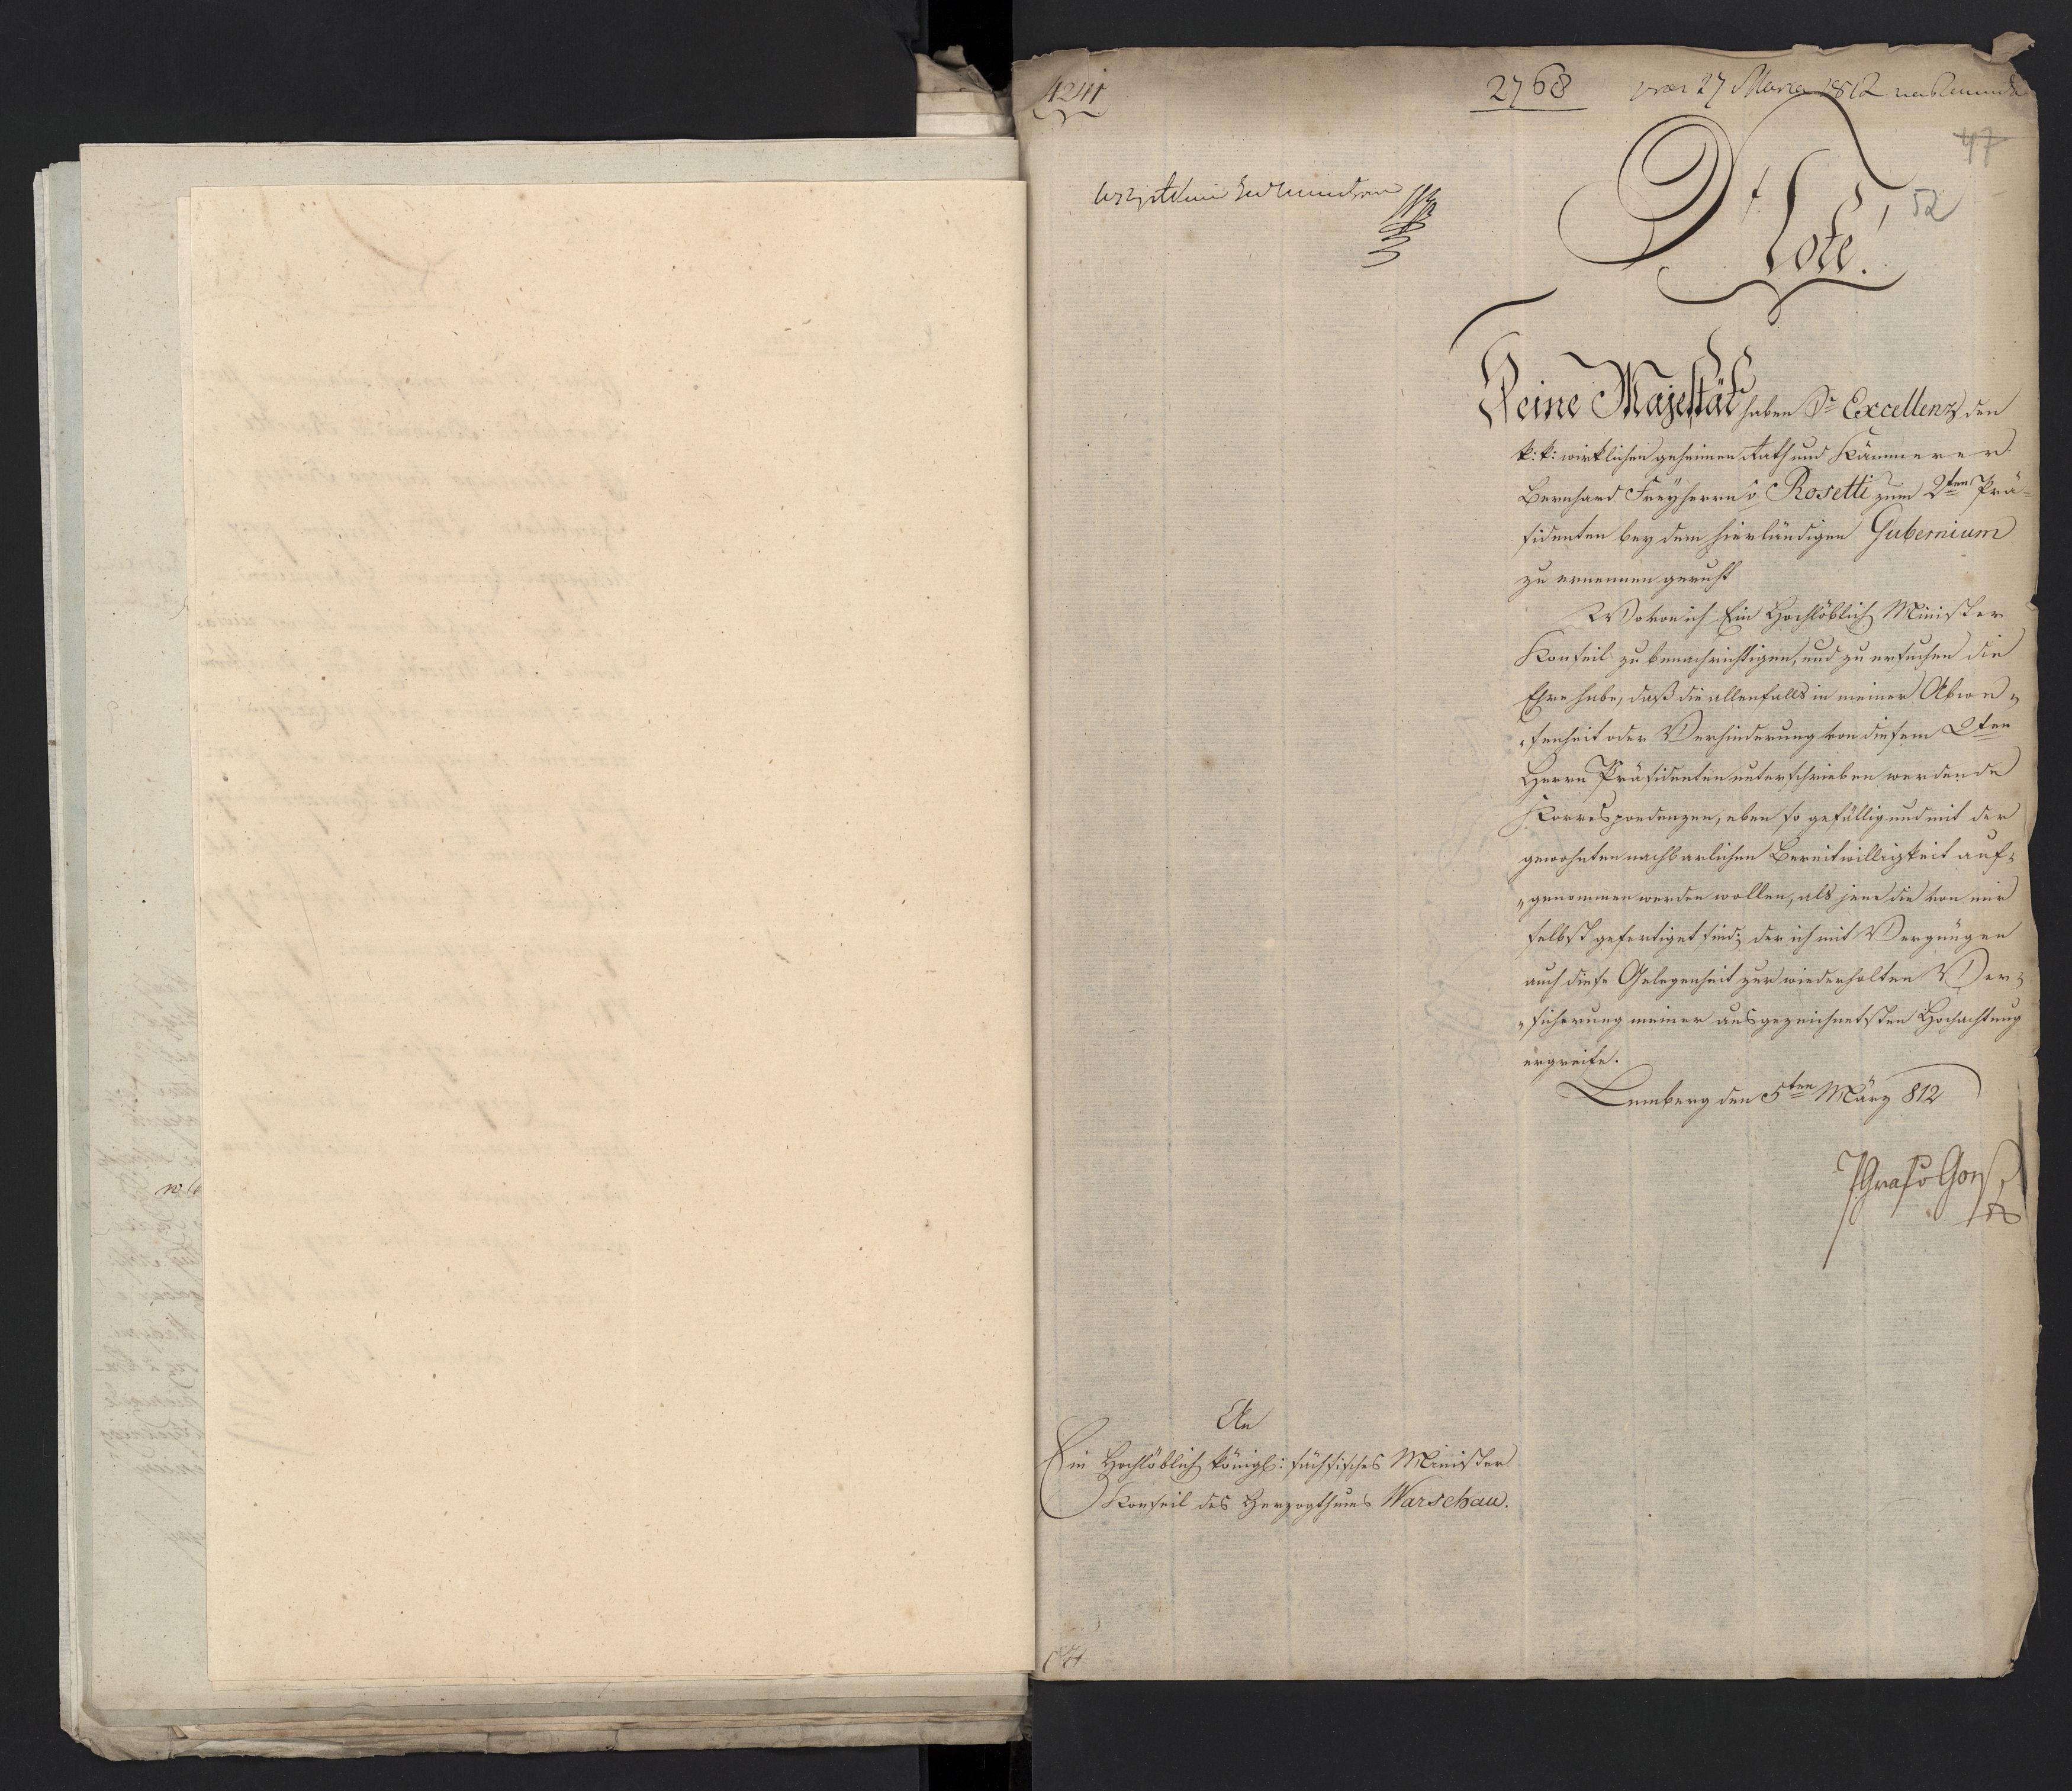 4241
2768
27 Marca 1812
47
52
Note!
Seine Majestät haben Sr Excellenz den
k: k: wirklichen geheimen Rath und Kämmerer
Bernhard Freyherrn v. Rosetti zum 2ten Prä-
sidenten bey dem hierländigen Gubernium
zu ernennen geruht
Wovon ich Ein Hochlöblich Minister
Konseil zu benachrichtigen, und zu ersuchen die
Ehre habe, daß die allenfalls in meiner Abwe-
senheit oder Verhinderung von diesem 2ten
Herrn Präsidenten unterschrieben werdende
Korrespondenzen, eben so gefällig und mit der
gewohnten nachbarlichen Bereitwilligkeit auf-
genommen werden wollen, als jene die von mir
selbst gefertiget sind; der ich mit Vergnügen
auch diese Gelegenheit zur wiederholten Ver-
sicherung meiner ausgezeichnetsten Hochachtung
ergreife.
Lemberg den 5ten März 812
An
Ein Hochlöblich königl: sächsisches Minister
Konseil des Herzogthums Warschau.